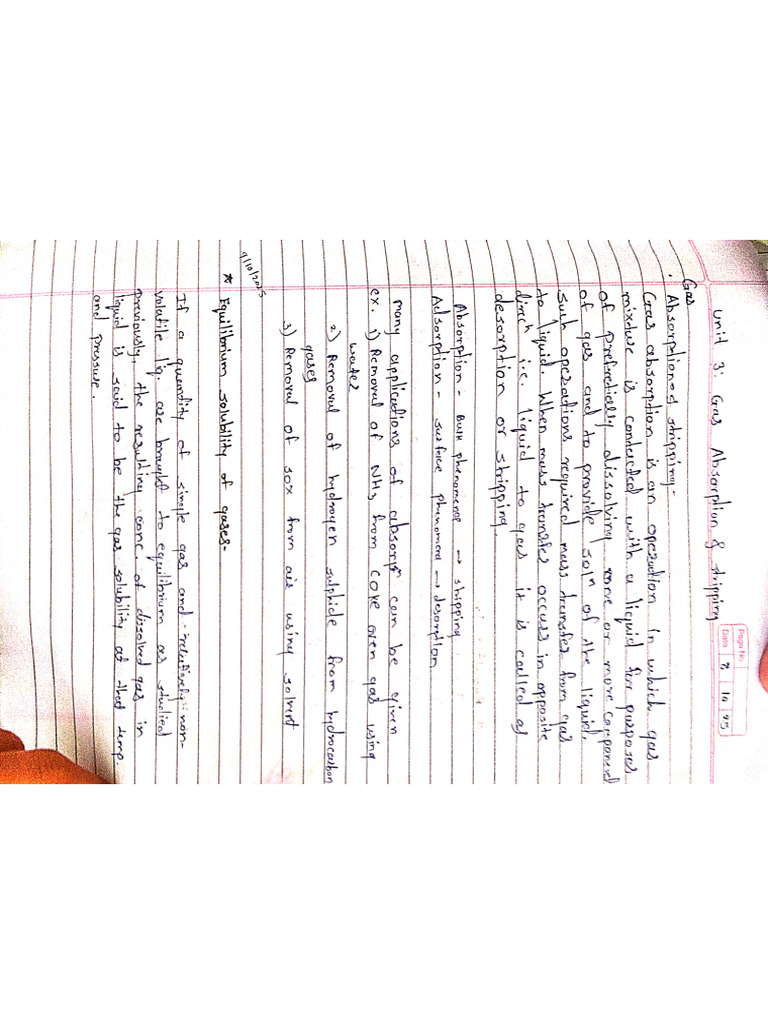 Page No.
Date 8 10 25
Unit 3: Gas Absorption & stripping
Gas
Absorption & stripping-
Gas absorption is an operation in which gas
mixture is contacted with a liquid for purposes
of prefretially dissolving one or more component
of gas and to provide solⁿ of the liquid.
such operations required mass transfer from gas
to liquid. When mass transfer occurs in opposite
dirⁿ i.e. liquid to gas it is called as
desorption or stripping
Absorption - Bulk phenomena → stripping
Adsorption - surface phenomena → desorption
many applications of absorpⁿ can be given
ex. 1) Removal of NH₃ from coke oven gas using
water
2) Removal of hydrogen sulphide from hydrocarbon
gases
3) Removal of sox from air using solvent
9/10/2025
* Equilibrium solubility of gases-
If a quantity of single gas and relatively non-
volatile liq. are brought to equilibrium as studied
previously, the resulting conc. of dissolved gas in
liquid is said to be the gas solubility at that temp.
and pressure.